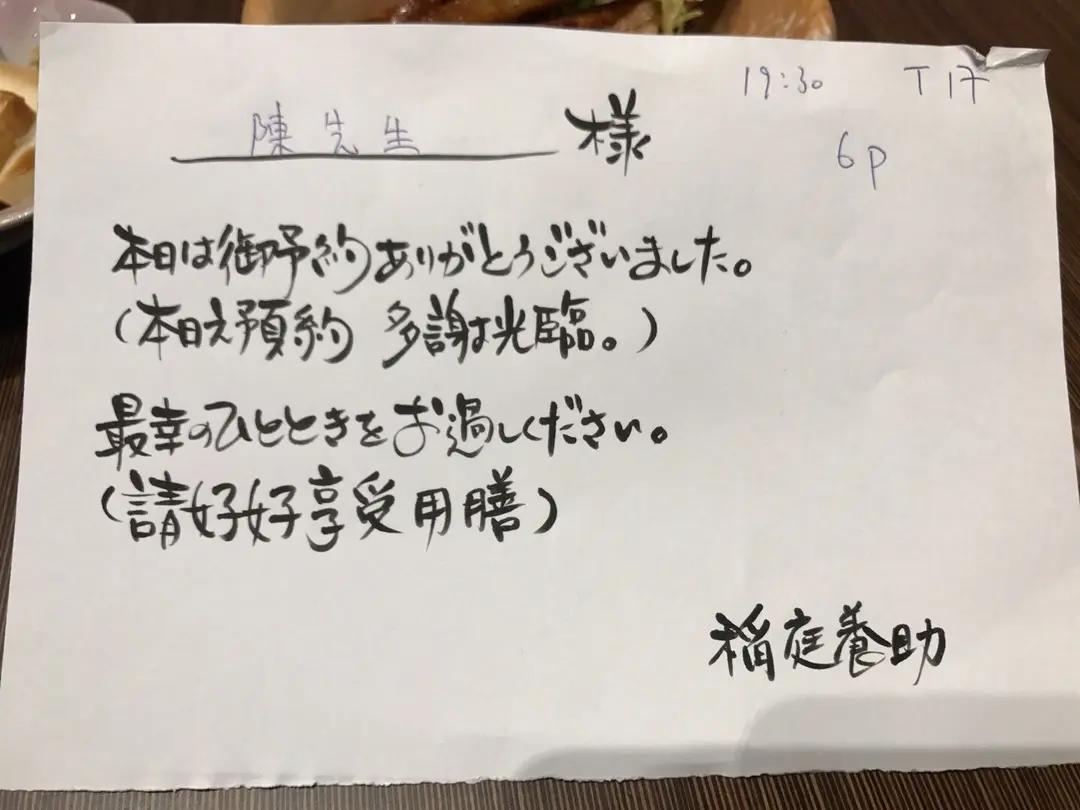 19:30 T17
陳先生 様
6p
本日は御予約ありがとうございました。
(本日之預約 多謝は光臨。)
最幸のひとときをお過しください。
(請好好享受用膳)
稲庭養助